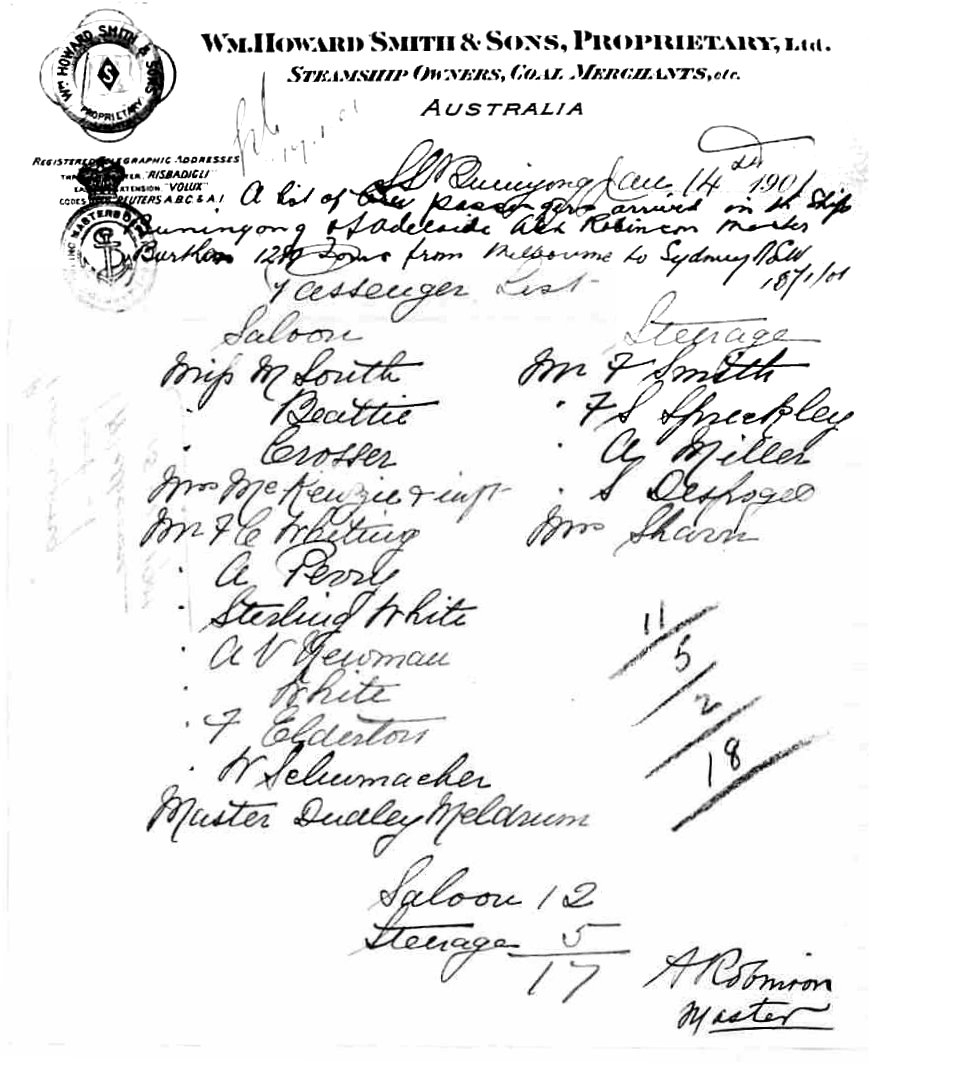 WM. HOWARD SMITH & SONS, PROPRIETARY, Ltd.
STEAMSHIP OWNERS, COAL MERCHANTS, etc.
AUSTRALIA
WM HOWARD SMITH & SONS
S
PROPRIETARY
17.1.01
REGISTERED TELEGRAPHIC ADDRESSES
"RISBADIGLI"
EXTENSION "VOLUX"
CODES REUTERS A.B.C & A.I
SS Buninyong Jan 14th 1901
A list of passengers arrived in the Ship
Buninyong of Adelaide Alex Robinson Master
Burthen Tons from Melbourne to Sydney NSW
18/1/01
Passenger List
Saloon
Miss M South
" Beattie
" Crosser
Mrs McKenzie & inft
Mr F C Whiting
" A Perry
" Sterling White
" A V Newman
" White
" F Elderton
" W Schumacher
Master Dudley Meldrum
Steerage
Mr F Smith
" F S Spreckley
" A Miller
" S
Mrs
11
5
2
18
Saloon 12
Steerage 5
17
A Robinson
Master